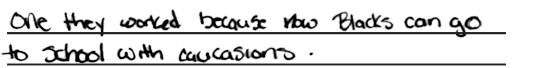 One they worked because now Blacks can go
to school with caucasions.